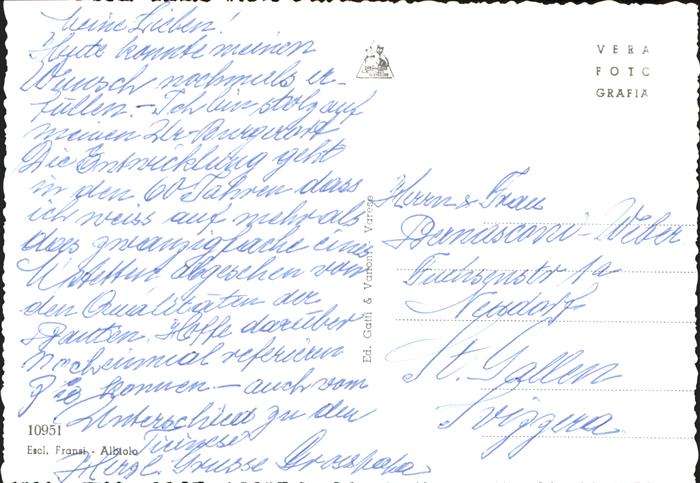 Meine Lieben!
Heute konnte meinen
Wunsch nochmals er-
füllen. - Ich bin stolz auf
meinen Ur-Burgerort
Die Entwicklung geht
in den 60 Jahren dass
ich weiss auf mehr als
das zwanzigfache eines
abgesehen von
den Qualitäten der
Bauten. Hoffe darüber
nocheinmal referieren
zu können - auch vom
Unterschied zu den
Herzl. Grüsse Grosspapa
VERA
FOTO
GRAFIA
Herrn & Frau
Bernasconi-Weber
Fuchsenstr 1a
Neudorf
St. Gallen
Svizzera
Ed. Gatti & Vanoni Varese
10951
Escl. Fransi - Albiolo